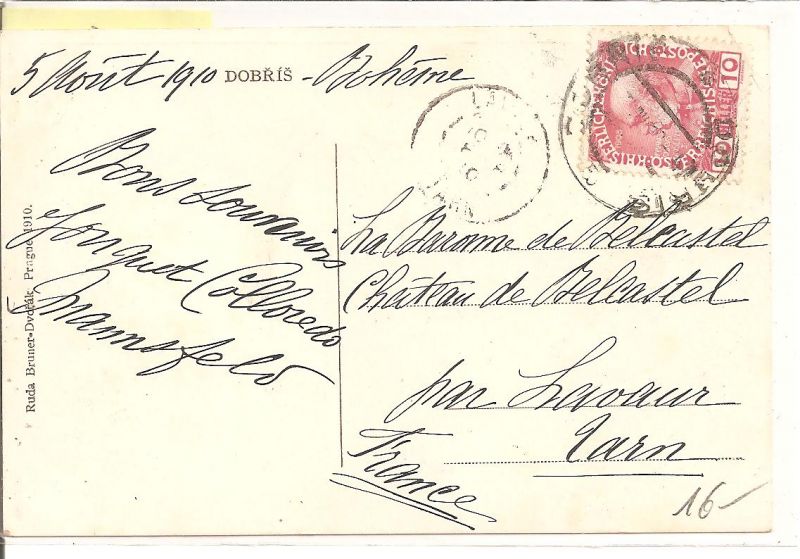 5 Août 1910 DOBŘÍŠ - Bohême
Bons souvenirs
Colloredo
Mannsfeld
Ruda Bruner-Dvořák, Prague 1910.
La Baronne de Belcastel
Château de Belcastel
par Lavaur
Tarn
France
10
HELLER
16-